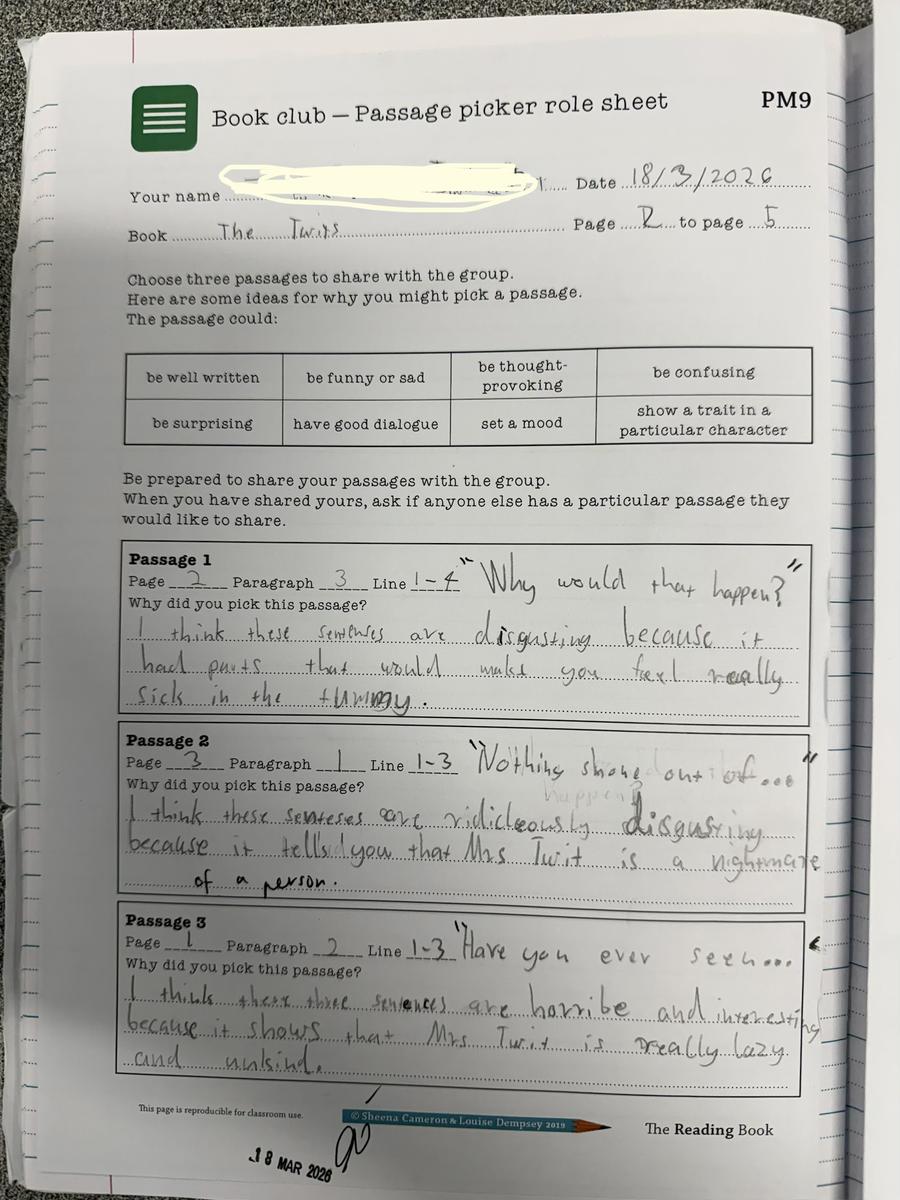 Book club – Passage picker role sheet PM9
Your name Date 18/3/2026
Book The Twits Page 2 to page 5
Choose three passages to share with the group.
Here are some ideas for why you might pick a passage.
The passage could:
be well written be funny or sad be thought-provoking be confusing
be surprising have good dialogue set a mood show a trait in a particular character
Be prepared to share your passages with the group.
When you have shared yours, ask if anyone else has a particular passage they
would like to share.
Passage 1
Page 2 Paragraph 3 Line 1-4 "Why would that happen?"
Why did you pick this passage?
I think these sentenses are disgusting because it
had parts that would make you feel really
sick in the tummy.
Passage 2
Page 3 Paragraph 1 Line 1-3 "Nothing shone out of..."
Why did you pick this passage?
I think these senteses are ridicleously disgusting
because it tells you that Mrs Twit is a nightmare
of a person.
Passage 3
Page 1 Paragraph 2 Line 1-3 "Have you ever seen...
Why did you pick this passage?
I think these three sentences are horribe and interesting
because it shows that Mrs Twit is really lazy
and unkind.
This page is reproducible for classroom use.
© Sheena Cameron & Louise Dempsey 2019
The Reading Book
18 MAR 2026